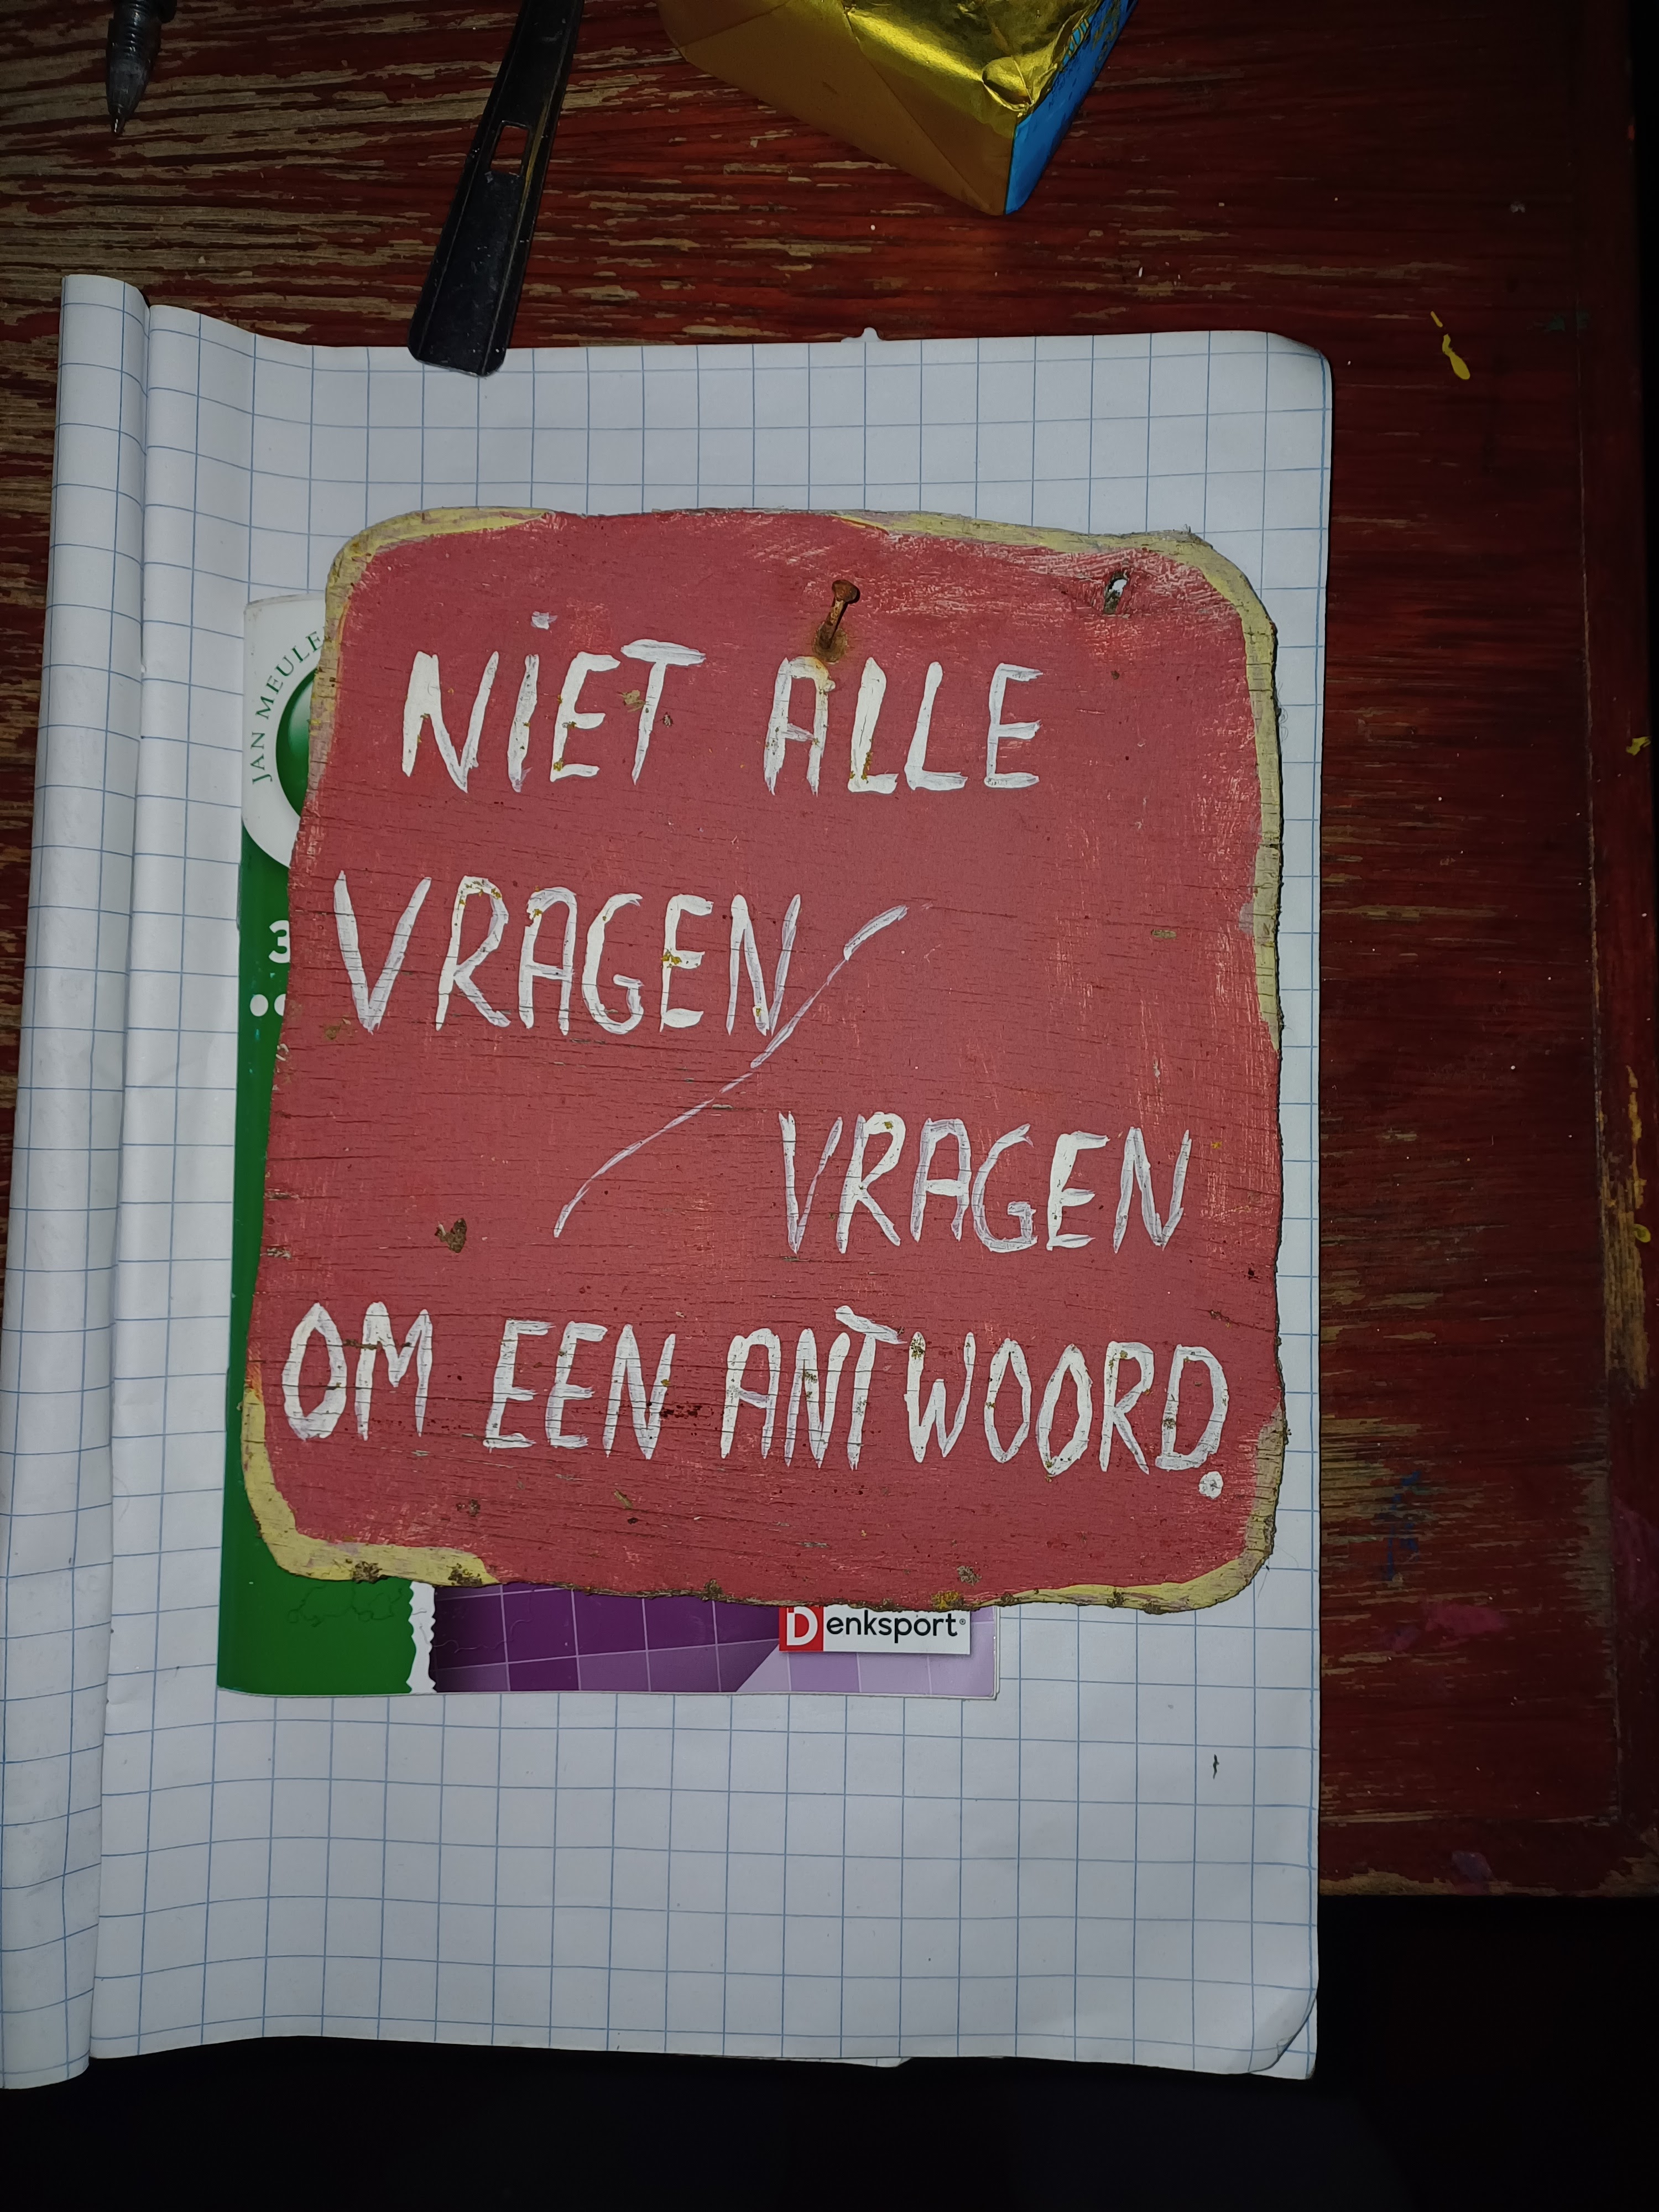 NIET ALLE
VRAGEN
VRAGEN
OM EEN ANTWOORD.
JAN
3
Denksport®